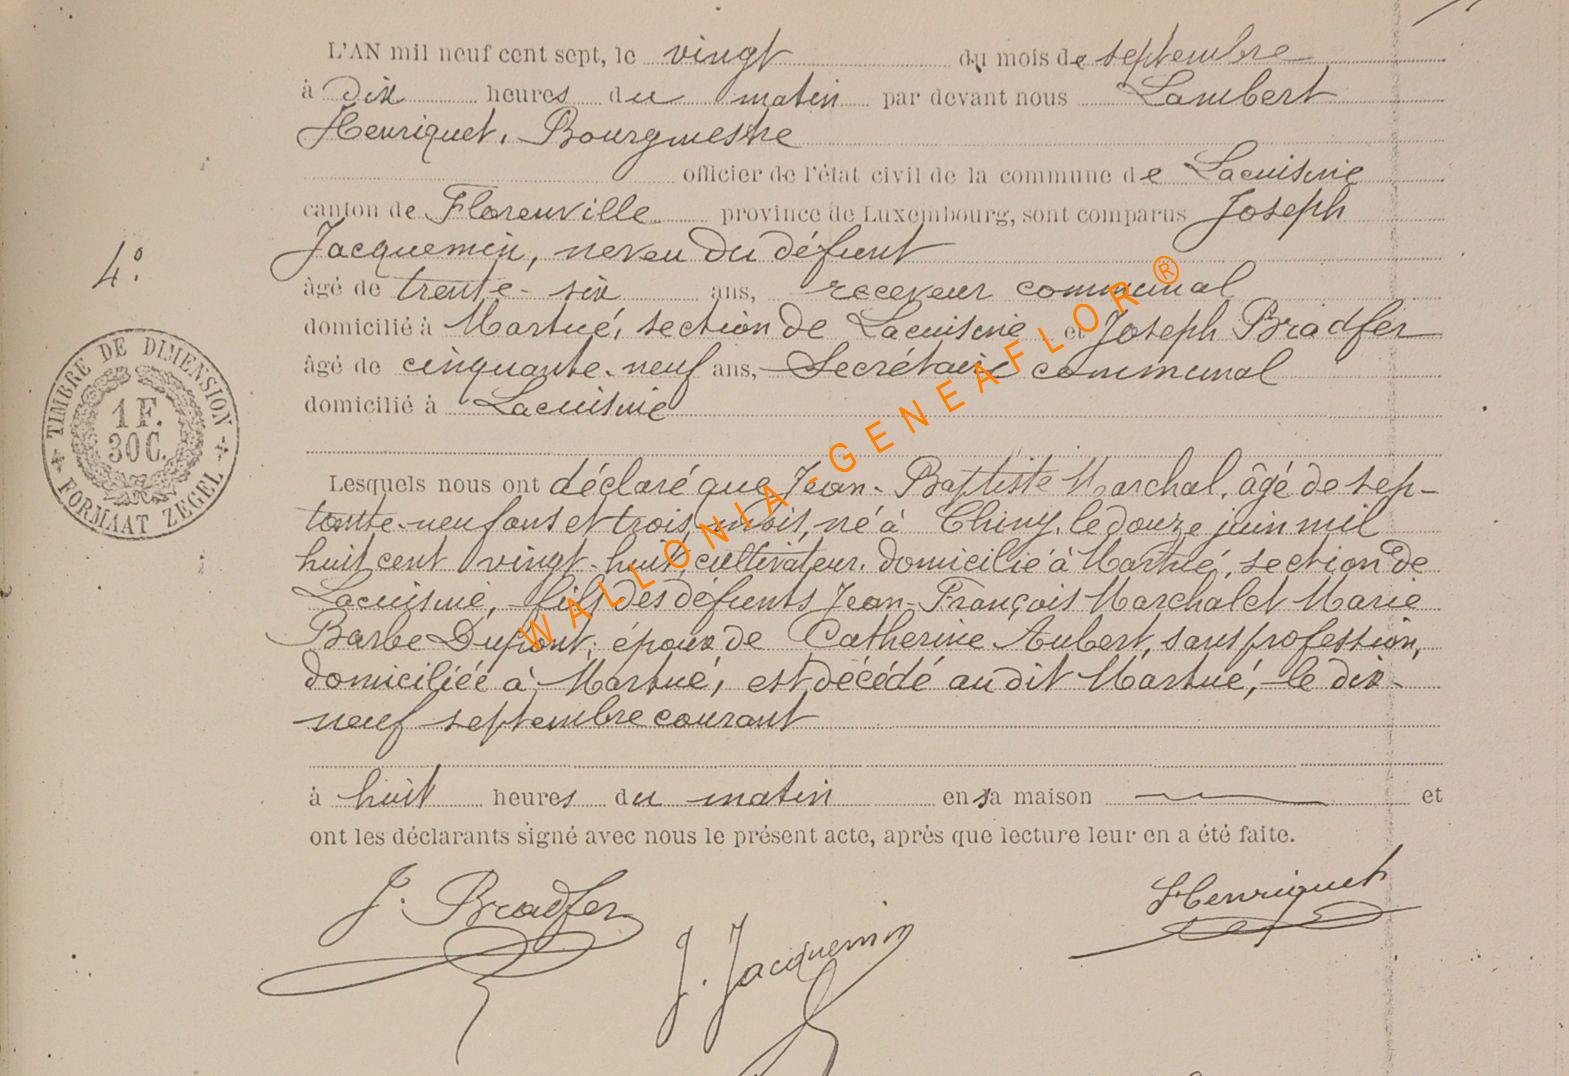 L'AN mil neuf cent sept, le vingt du mois de septembre
à dix heures du matin par devant nous Lambert
Henriquet, Bourgmestre
officier de l'état civil de la commune de Lacuisine
canton de Florenville province de Luxembourg, sont comparus Joseph
Jacquemin, neveu du défunt
4°.
âgé de trente-six ans, receveur communal
domicilié à Martué, section de Lacuisine et Joseph Bradfer
âgé de cinquante-neuf ans, Secrétaire communal
domicilié à Lacuisine
TIMBRE DE DIMENSION
1 F.
30 C.
FORMAAT ZEGEL
Lesquels nous ont déclaré que Jean-Baptiste Marchal, âgé de sep-
tante-neuf ans et trois mois, né à Chiny, le douze juin mil
huit cent vingt-huit, cultivateur, domicilié à Martué, section de
Lacuisine, fils des défunts Jean-François Marchal et Marie
Barbe Dupont, époux de Catherine Aubert, sans profession,
domiciliée à Martué, est décédé au dit Martué, le dix-
neuf septembre courant
à huit heures du matin en sa maison et
ont les déclarants signé avec nous le présent acte, après que lecture leur en a été faite.
J. Bradfer
J. Jacquemin
LHenriquet
WALLONIA-GENEAFLOR®